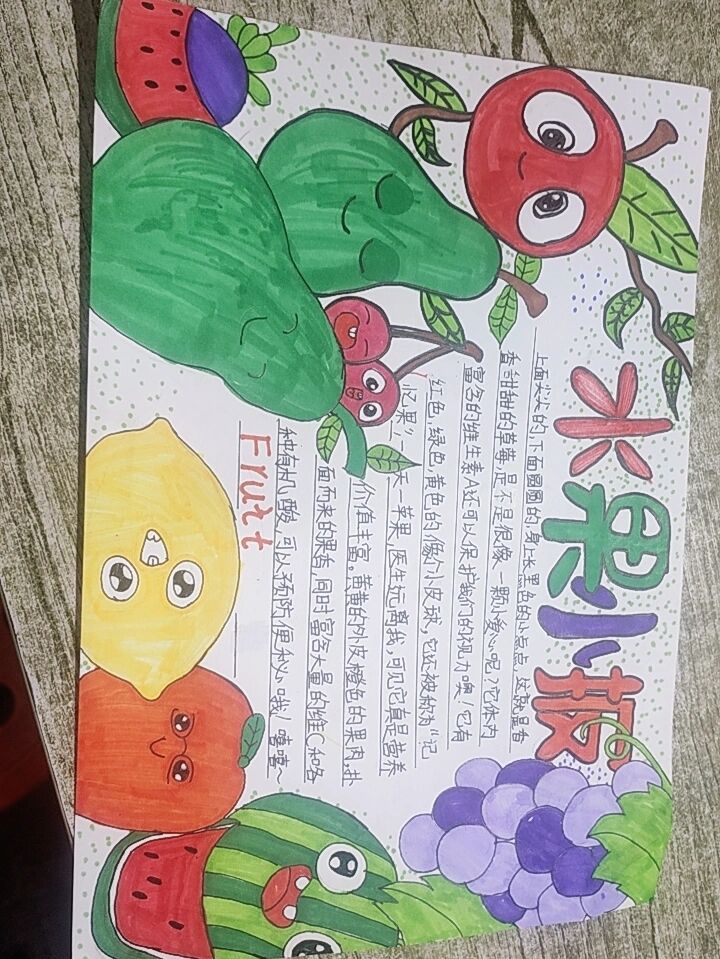 水果小报
上面尖尖的,下面圆圆的,身上长黑色的小点点,这就是香
香甜甜的草莓,是不是很像一颗小爱心呢?它体内
富含的维生素A还可以保护我们的视力噢!它有
红色,绿色,黄色的像个小皮球,它还被称为“记
忆果”,一天一苹果,医生远离我,可见它真是营养
价值丰富。黄黄的外皮橙色的果肉,扑
面而来的果香,同时富含大量的维C和各
种有机酸,可以预防便秘哦!嘻嘻~
Fruit